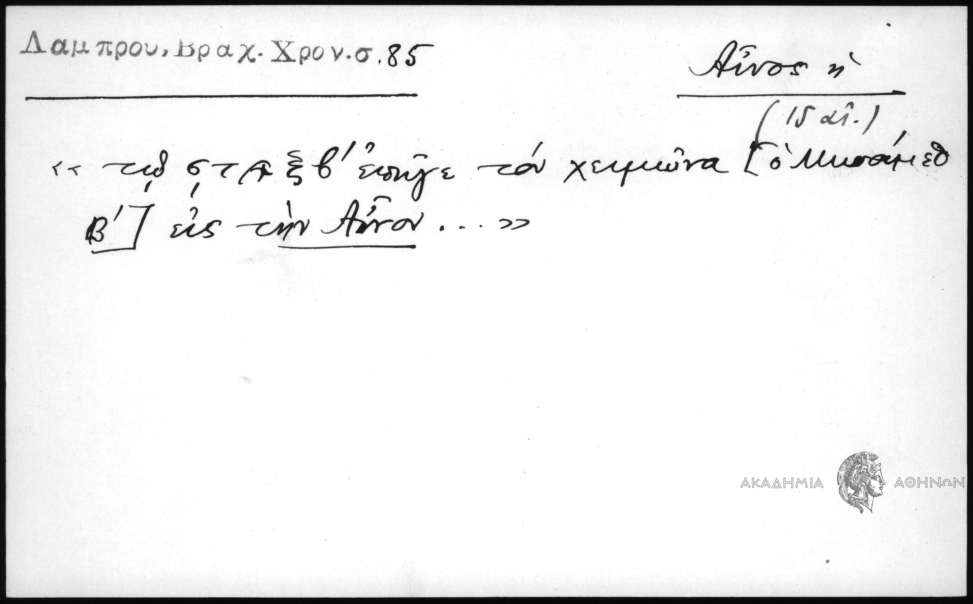 Λαμπρου, Βραχ. Χρον. σ. 85
Αἶνος ἡ
(15 αἰ.)
«τῷ ͵ϛϡξβ' ἐπῆγε τὸν χειμῶνα [ὁ Μωάμεθ
Β'] εἰς τὴν Αἶνον ...»
ΑΚΑΔΗΜΙΑ ΑΘΗΝΩΝ